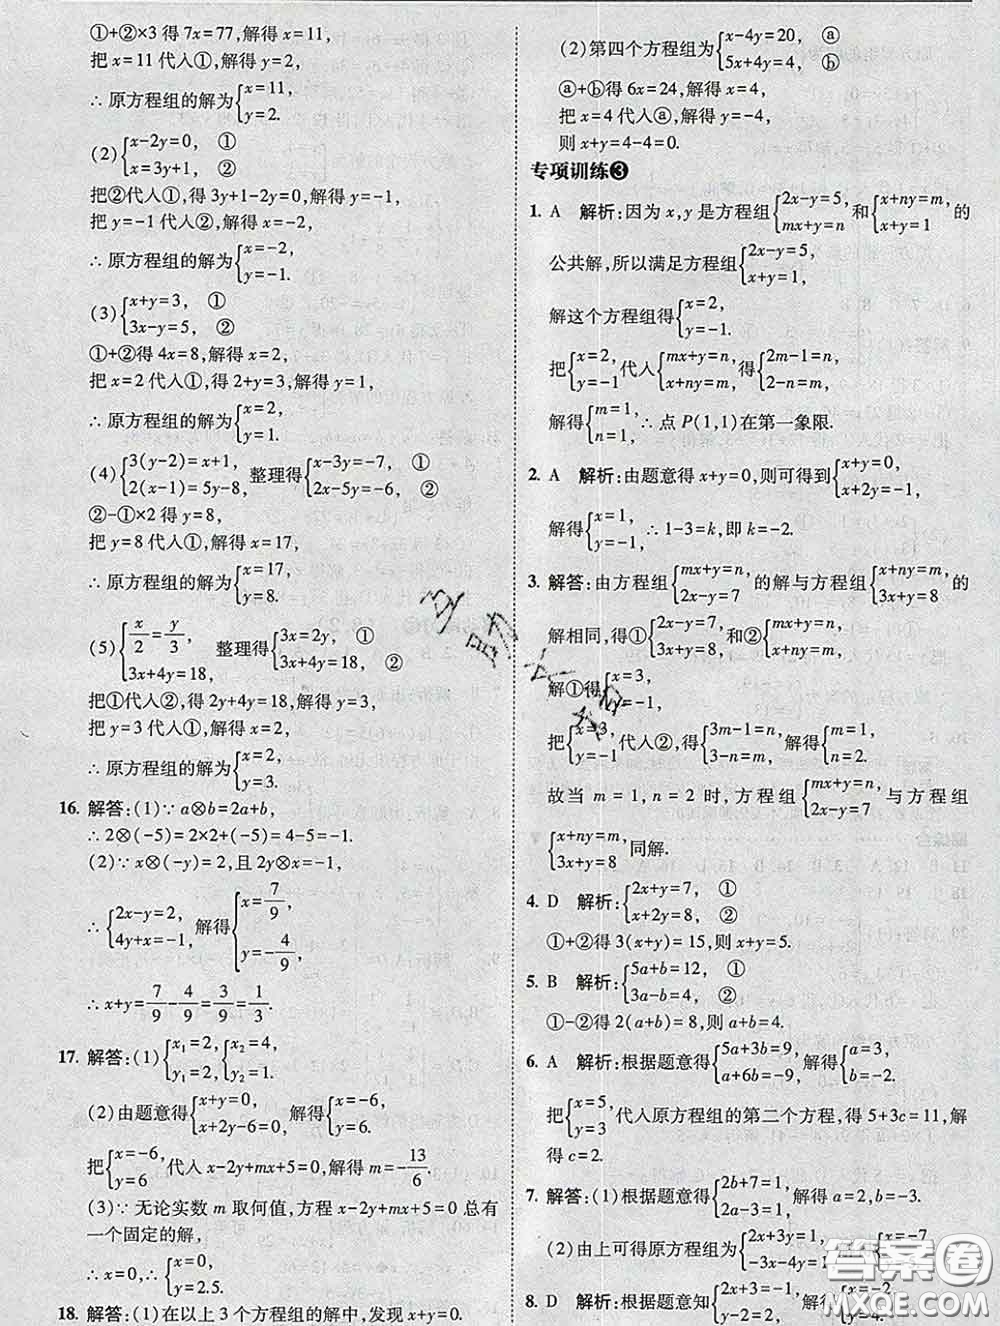 ①+②×3 得 7x=77,解得 x=11,
把 x=11 代入①,解得 y=2,
∴ 原方程组的解为{x=11, y=2.
(2){x-2y=0, ① x=3y+1, ②
把②代入①,得 3y+1-2y=0,解得 y=-1,
把 y=-1 代入②,解得 x=-2,
∴ 原方程组的解为{x=-2, y=-1.
(3){x+y=3, ① 3x-y=5, ②
①+②得 4x=8,解得 x=2,
把 x=2 代入①,得 2+y=3,解得 y=1,
∴ 原方程组的解为{x=2, y=1.
(4){3(y-2)=x+1, 2(x-1)=5y-8, 整理得{x-3y=-7, ① 2x-5y=-6, ②
②-①×2 得 y=8,
把 y=8 代入①,解得 x=17,
∴ 原方程组的解为{x=17, y=8.
(5){x/2=y/3, 3x+4y=18, 整理得{3x=2y, ① 3x+4y=18, ②
把①代入②,得 2y+4y=18,解得 y=3,
把 y=3 代入①,解得 x=2,
∴ 原方程组的解为{x=2, y=3.
16. 解答:(1)∵ a⊗b=2a+b,
∴ 2⊗(-5)=2×2+(-5)=4-5=-1.
(2)∵ x⊗(-y)=2,且 2y⊗x=-1,
∴ {2x-y=2, 4y+x=-1, 解得{x=7/9, y=-4/9,
∴ x+y=7/9-4/9=3/9=1/3.
17. 解答:(1){x₁=2, y₁=2, {x₂=4, y₂=1.
(2)由题意得{x+y=0, x+2y-6=0, 解得{x=-6, y=6.
把{x=-6, y=6 代入 x-2y+mx+5=0,解得 m=-13/6.
(3)∵ 无论实数 m 取何值,方程 x-2y+mx+5=0 总有
一个固定的解,
∴ x=0,∴{x=0, y=2.5.
18. 解答:(1)在以上 3 个方程组的解中,发现 x+y=0.
(2)第四个方程组为{x-4y=20, ⓐ 5x+4y=4, ⓑ
ⓐ+ⓑ得 6x=24,解得 x=4,
把 x=4 代入ⓐ,解得 y=-4,
则 x+y=4-4=0.
专项训练❸
1. A 解析:因为 x,y 是方程组{2x-y=5, mx+y=n 和{x+ny=m, x+y=1 的
公共解,所以满足方程组{2x-y=5, x+y=1,
解这个方程组得{x=2, y=-1.
把{x=2, y=-1 代入{mx+y=n, x+ny=m, 得{2m-1=n, 2-n=m,
解得{m=1, n=1, ∴ 点 P(1,1)在第一象限.
2. A 解析:由题意得 x+y=0,则可得到{x+y=0, 4x+3y=1,
解得{x=1, y=-1, ∴ 1-3=k,即 k=-2.
3. 解答:由方程组{mx+y=n, 2x-y=7 的解与方程组{x+ny=m, 3x+y=8 的
解相同,得①{2x-y=7, 3x+y=8 和②{mx+y=n, x+ny=m,
解①得{x=3, y=-1,
把{x=3, y=-1 代入②,得{3m-1=n, 3-n=m, 解得{m=1, n=2,
故当 m=1,n=2 时,方程组{mx+y=n, 2x-y=7 与方程组
{x+ny=m, 3x+y=8 同解.
4. D 解析:{2x+y=7, ① x+2y=8, ②
①+②得 3(x+y)=15,则 x+y=5.
5. B 解析:{5a+b=12, ① 3a-b=4, ②
①-②得 2(a+b)=8,则 a+b=4.
6. A 解析:根据题意得{5a+3b=9, a+6b=-9, 解得{a=3, b=-2.
把{x=5, y=3 代入原方程组的第二个方程,得 5+3c=11,解
得 c=2.
7. 解答:(1)根据题意得{2b+7=1, 2a-3=1, 解得 a=2,b=-3.
(2)由上可得原方程组为{2x+3y=1, -3x-4y=1, 解得{x=-7
8. D 解析:根据题意知{2x+3=-1, y-2=2, 解得{x=-2,
答案圈
MXQE.COM